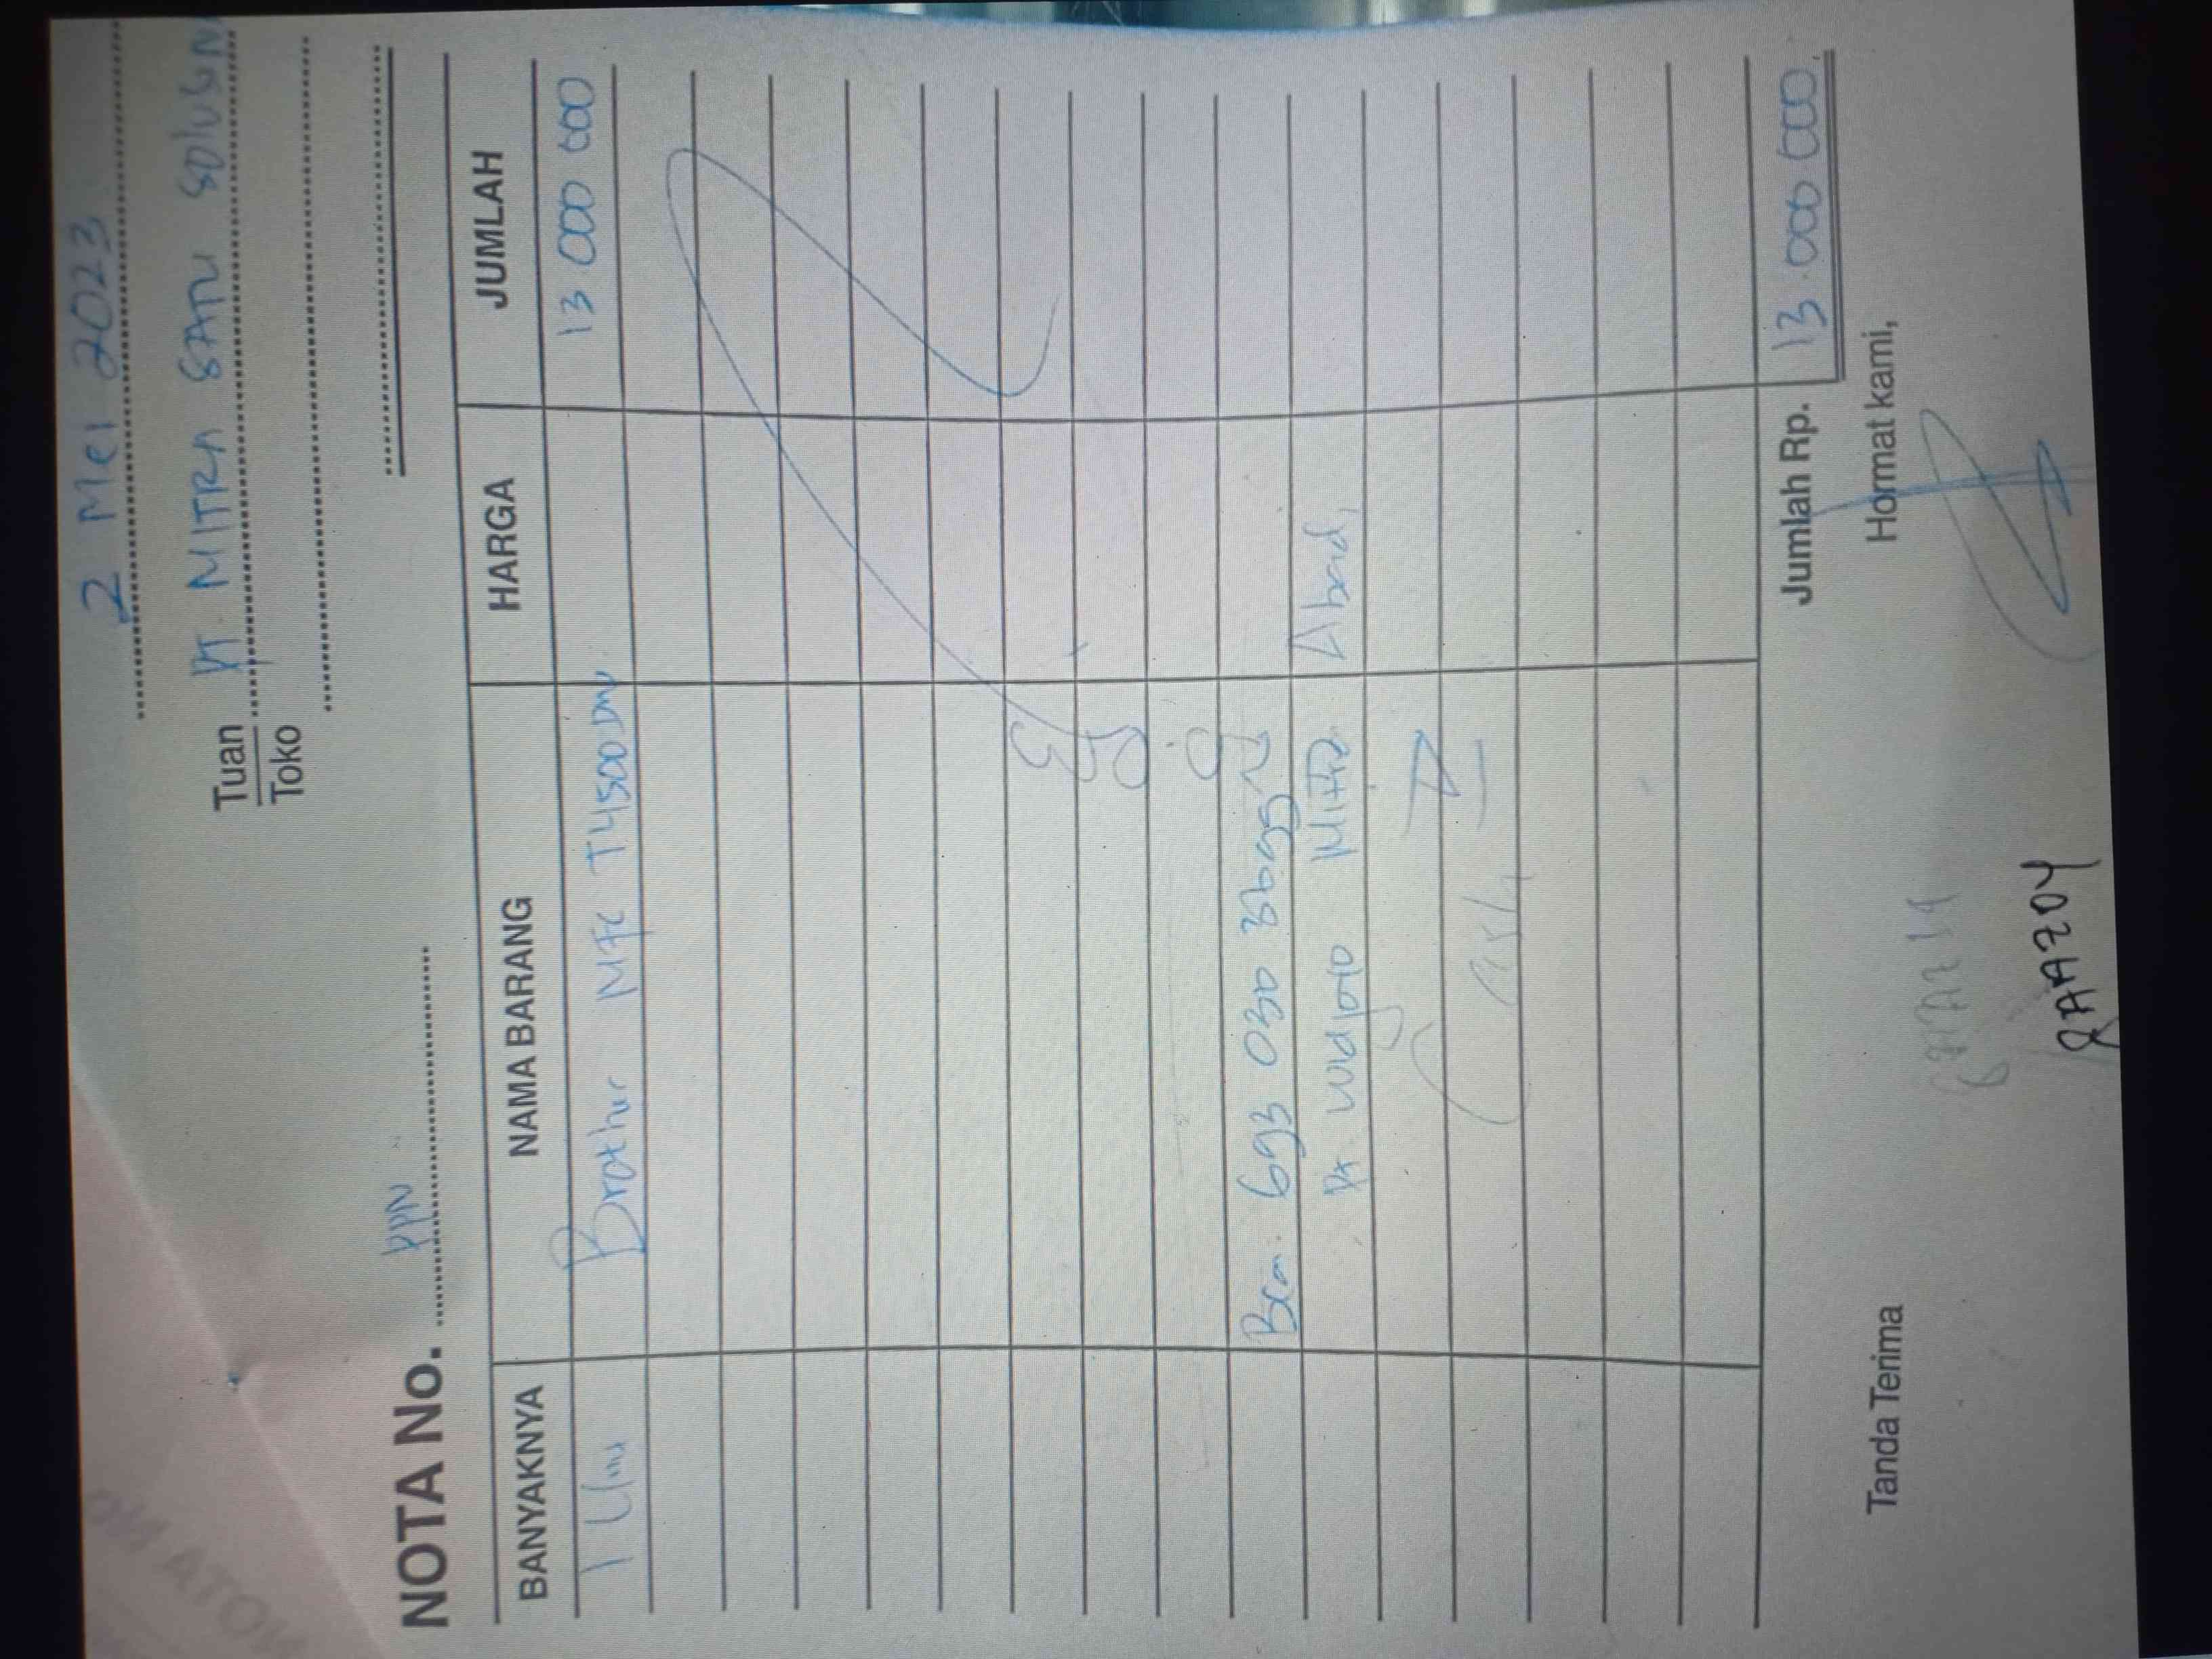 2 Mei 2023
Tuan PT. MITRA SATU SOLUSIN
Toko
NOTA No. PPN
BANYAKNYA NAMA BARANG HARGA JUMLAH
1 Unit Brother MFC T4500DW 13 000 000
Bca. 693 030
PT Widjojo Mitra Abadi
Cash
Jumlah Rp. 13.000 000
Tanda Terima Hormat kami,